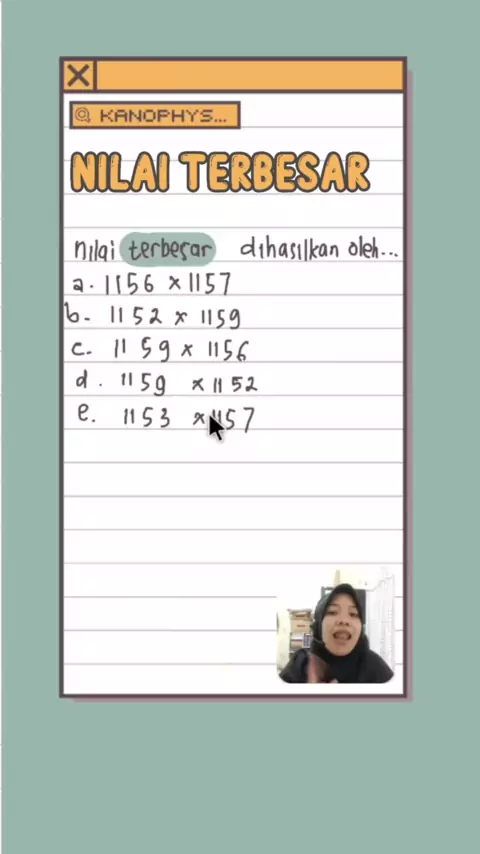 KANOPHYS...
NILAI TERBESAR
nilai terbesar dihasilkan oleh...
a. 1156 x 1157
b. 1152 x 1159
c. 1159 x 1156
d. 1159 x 1152
e. 1153 x 1157